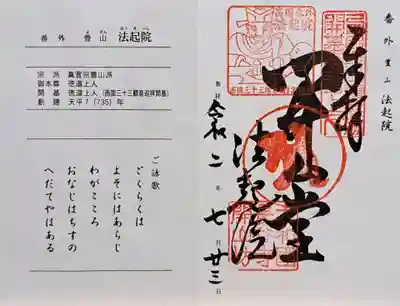 番外 豊山 法起院
ぶざん ほうきいん
宗派 真言宗豊山派
御本尊 徳道上人
開基 徳道上人(西国三十三観音巡拝開基)
創建 天平7(735)年
ご詠歌
ごくらくは
よそにはあらじ
わがこころ
おなじはちすの
へだてやはある
番外 豊山 法起院
奉拝
開山堂
法起院
令和二年七月廿三日